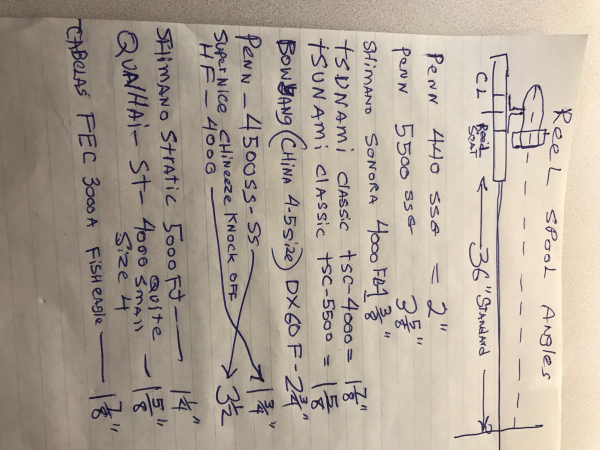 Reel Spool Angles
CL Reel Seat
36" Standard
Penn 440 ssg = 2"
Penn 5500 ssg 3 5/8"
Shimano Sonora 4000 FB 1 3/8"
tSUNAMi classic tSC-4000 = 1 7/8"
tSUNAMi classic tSC-5500 = 1 5/8
(China 4-5 size) DX60F - 2 3/4"
Penn - 4500ss-ss 1 3/4"
Super Nice Chineeze Knock off
HF - 4000 3 1/2
Shimano Stratic 5000 FJ — 1 1/4"
QUAlHAi - St - 4000 Quite small - 1 5/8"
Size 4
CABELAS FEC 3000A Fisheable — 1 7/8"